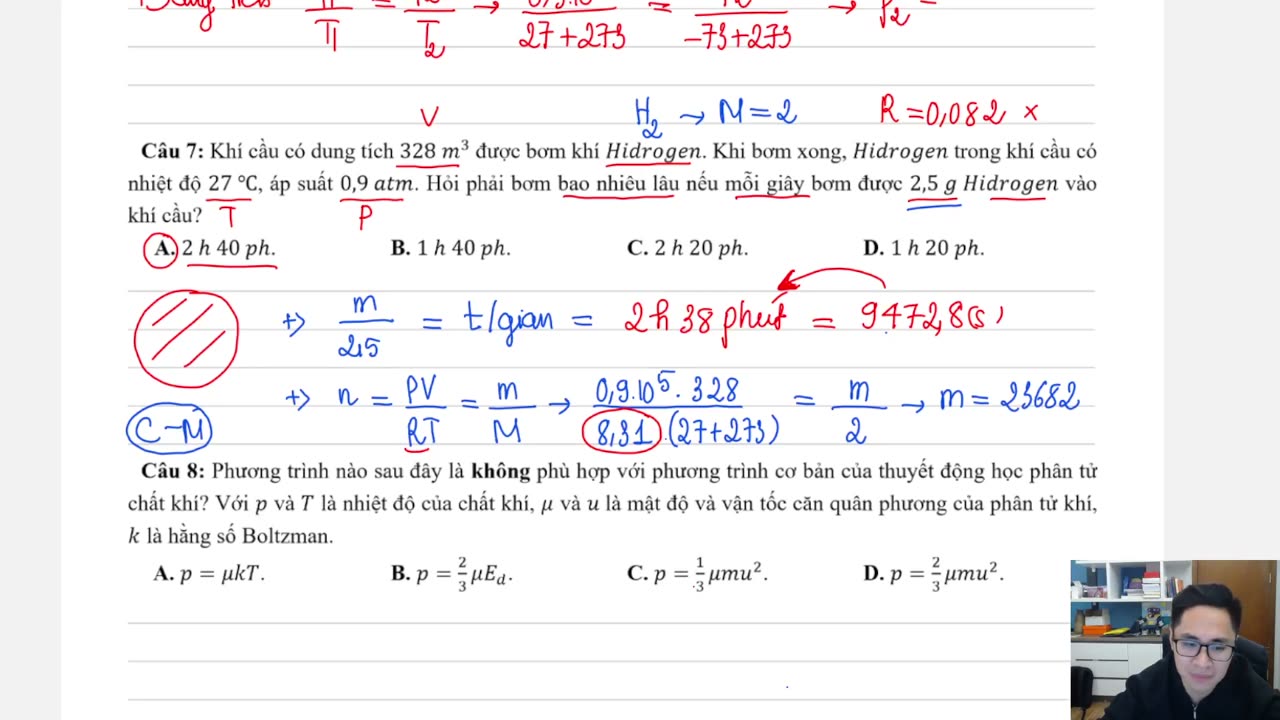 T₁ T₂ 27+273 = -73+273 → P₂ =
V H₂ → M=2 R=0,082 ×
Câu 7: Khí cầu có dung tích 328 m³ được bơm khí Hidrogen. Khi bơm xong, Hidrogen trong khí cầu có
nhiệt độ 27 °C, áp suất 0,9 atm. Hỏi phải bơm bao nhiêu lâu nếu mỗi giây bơm được 2,5 g Hidrogen vào
khí cầu? T P
A. 2 h 40 ph. B. 1 h 40 ph. C. 2 h 20 ph. D. 1 h 20 ph.
+) m/2,5 = t/gian = 2h 38 phút = 9472,8(s)
+) n = PV/RT = m/M → 0,9.10⁵.328/8,31.(27+273) = m/2 → m = 23682
C-M
Câu 8: Phương trình nào sau đây là không phù hợp với phương trình cơ bản của thuyết động học phân tử
chất khí? Với p và T là nhiệt độ của chất khí, μ và u là mật độ và vận tốc căn quân phương của phân tử khí,
k là hằng số Boltzman.
A. p = μkT. B. p = 2/3 μE_d. C. p = 1/3 μmu². D. p = 2/3 μmu².